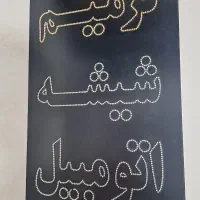 ترمیم
شیشه
اتومبیل